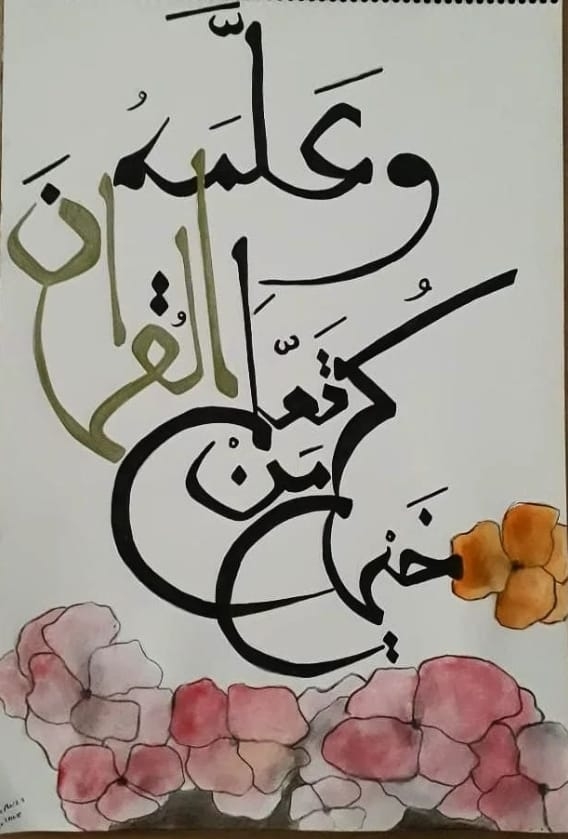 خَيركُم
مَنْ
تَعَلَّمَ
القُرانَ
وَعَلَّمَهُ